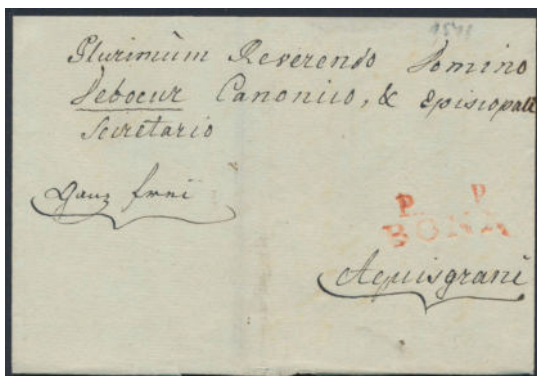 Plurimùm Reverendo Domino
Deboeur Canonico, & Episcopali
Secretario
ganz frei
P. P.
BONN
Aquisgrani